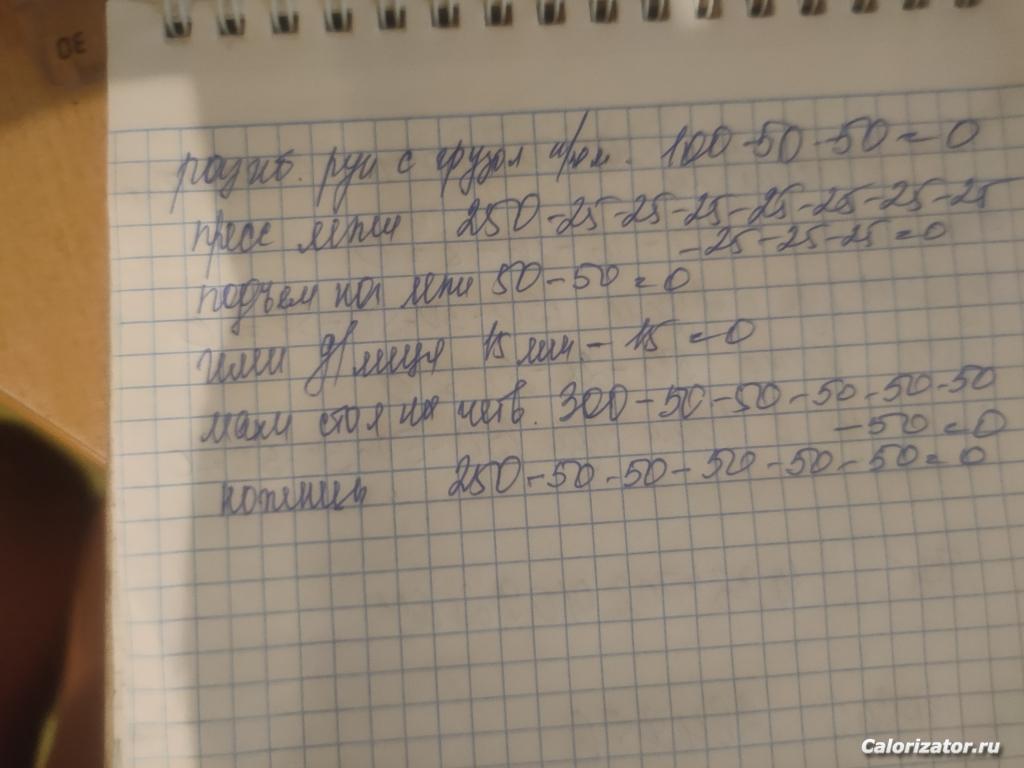 30
разгиб. рук с грузом 100-50-50=0
пресс лёжа 250-25-25-25-25-25-25-25
-25-25-25=0
подъем ног лежа 50-50=0
гимн д/лица 15 мин - 15=0
махи стоя на четв. 300-50-50-50-50-50
-50=0
ножницы 250-50-50-50-50-50=0
Calorizator.ru